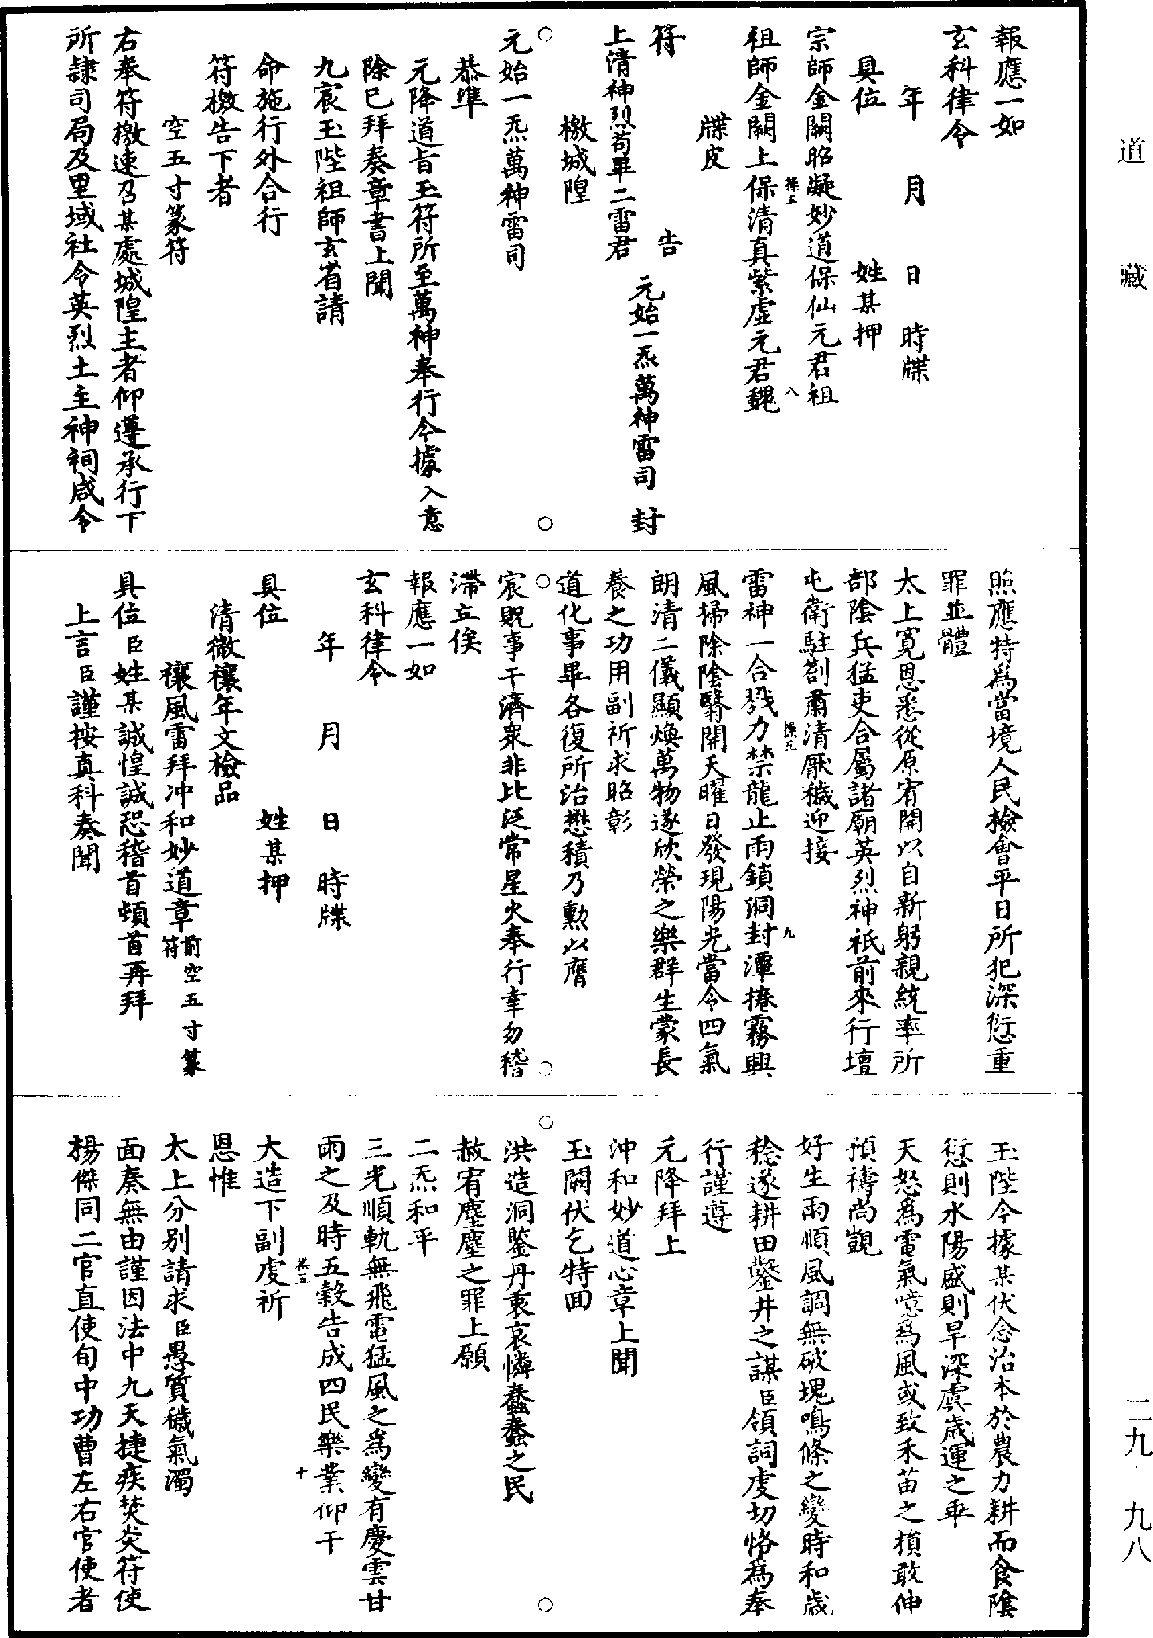 道藏
報應一如
玄科律令
年　月　日　時牒
具位　姓某押
宗師金闕昭凝妙道保仙元君祖
祖師金闕上保清真紫虛元君魏
八
牒皮
符　告　元始一炁萬神雷司　封
上清神烈苟畢二雷君
檄城隍
元始一炁萬神雷司
恭準
元降道旨玉符所至萬神奉行今據入意
除已拜奏章書上聞
九宸玉陛祖師玄省請
命施行外合行
符檄告下者
空五寸篆符
右奉符檄速召某處城隍主者仰遵承行下
所隷司局及里域社令英烈土主神祠咸令
照應特為當境人民檢會平日所犯深愆重
罪並體
太上寬恩悉從原宥開以自新躬親統率所
部陰兵猛吏合屬諸廟英烈神祇前來行壇
屯衛駐劄肅清厭穢迎接
九
雷神一合戮力禁龍止雨鎖洞封潭捲霧興
風掃除陰翳開天曜日發現陽光當令四氣
朗清二儀顯煥萬物遂欣榮之樂群生蒙長
養之功用副祈求昭彰
道化事畢各復所治懋積乃勲以膺
宸貺事干濟衆非比泛常星火奉行幸勿稽
滯立俟
報應一如
玄科律令
年　月　日　時牒
具位　姓某押
清微禳年文檢品
禳風雷拜冲和妙道章前空五寸篆符
具位臣姓某誠惶誠恐稽首頓首再拜
上言臣謹按真科奏聞
玉陛今據某伏念治本於農力耕而食陰
愆則水陽盛則旱深虞歲運之乖
天怒為電氣噫為風或致禾苗之損敢伸
預禱尚覬
好生雨順風調無破塊鳴條之變時和歲
稔遂耕田鑿井之謀臣領詞虔切恪為奉
行謹遵
元降拜上
沖和妙道心章上聞
玉闕伏乞特回
洪造洞鑒丹衷哀憐蠢蠢之民
赦宥塵塵之罪上願
二炁和平
三光順軌無飛電猛風之為變有慶雲甘
雨之及時五穀告成四民樂業仰干
十
大造下副虔祈
恩惟
太上分別請求臣愚質穢氣濁
面奏無由謹因法中九天捷疾焚炎符使
楊傑同二官直使旬中功曹左右官使者
二九·九八